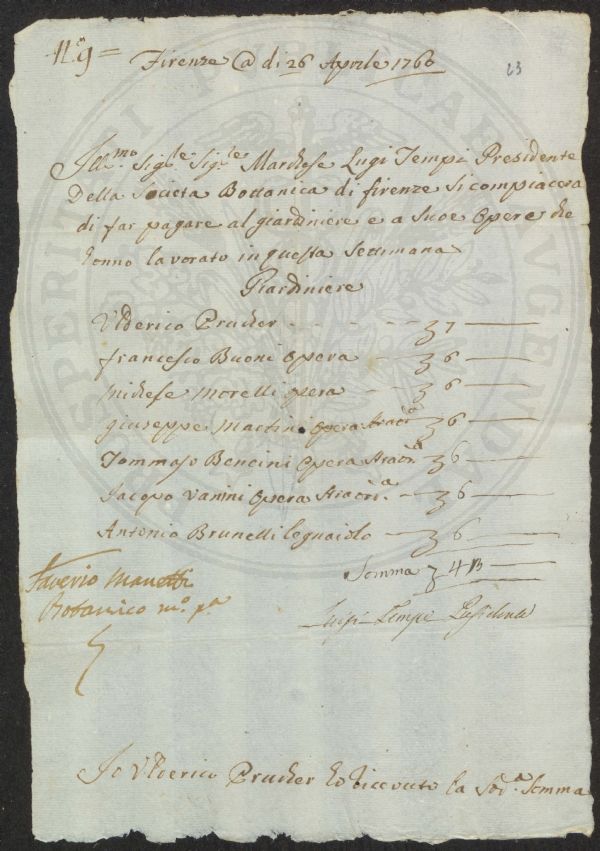 N.º 9 =
Firenze @ di 26 Aprile 1760
23
Ill.mo Sig.le Sig.le Marchese Luigi Tempi Presidente
Della Societa Bottanica di firenze Si compiacera
di far pagare al giardiniere e a Suoe Opere che
honno lavorato in questa Settimana
Giardiniere
Ulderico Prucher - - - - - - 7
francesco Buoni Opera - - 6
Michese Morelli Opera - - 6
Giuseppe Martini Opera straor.a 6
Tommaso Bencini Opera straor.a 6
Jacopo Vanini Opera straori.a - 6
Antonio Brunelli legnaiolo - - 6
Somma 43
Saverio Manetti
Botanico m.o p.a
Luigi Tempi Presidente
Io Ulderico Prucher ho ricevuto la Sod.a Somma
PROSPERITATI PUBLICAE AUGENDAE